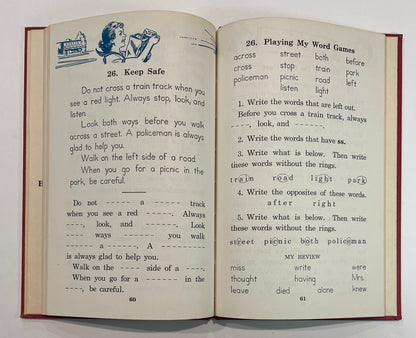 26. Keep Safe
Do not cross a train track when
you see a red light. Always stop, look, and
listen.
Look both ways before you walk
across a street. A policeman is always
glad to help you.
Walk on the left side of a road.
When you go for a picnic in the
park, be careful.
Do not ----- a ----- track
when you see a red -----. Always
----, look, and ------. Look
---- ways ------ you walk
------ a ------. A ---------
is always glad to help you.
Walk on the ---- side of a ----.
When you go for a ------ in the
----, be careful.
60
26. Playing My Word Games
across street both before
cross stop train park
policeman picnic road left
listen light
1. Write the words that are left out.
Before you cross a train track, always
----, look, and ------.
2. Write the words that have ss.
3. Write what is below. Then write
these words without the rings.
train road light park
4. Write the opposites of these words.
after right
5. Write what is below. Then write
these words without the rings.
street picnic both policeman
MY REVIEW
miss write were
thought having Mrs.
leave died alone knew
61